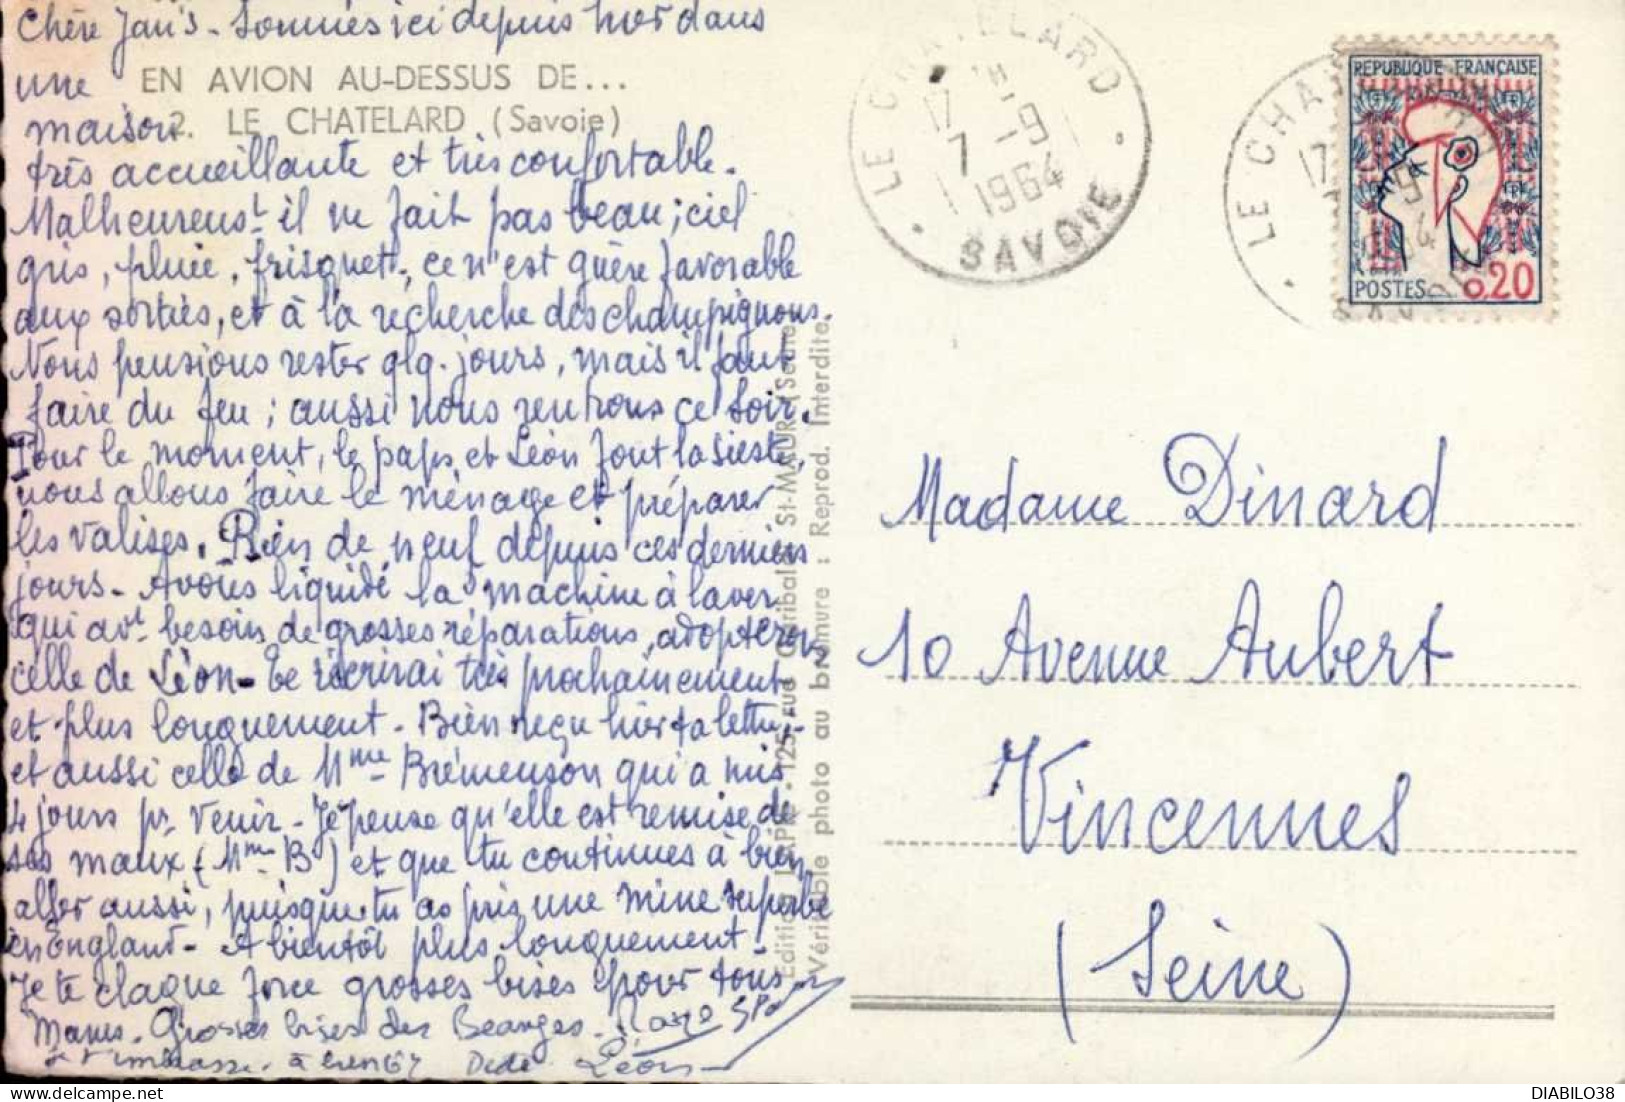 Chère Jan's - Sommes ici depuis hier dans
une
EN AVION AU-DESSUS DE...
maison
2. LE CHATELARD (Savoie)
très accueillante et très confortable.
Malheureus.t il ne fait pas beau ; ciel
gris, pluie, frisquet, ce n'est guère favorable
aux sorties, et à la recherche des champignons.
Nous pensions rester qlq. jours, mais il faut
faire du feu ; aussi nous rentrons ce soir.
Pour le moment, le paps et Léon font la sieste,
nous allons faire le ménage et préparer
les valises. Rien de neuf depuis ces derniers
jours - Avons liquidé la machine à laver
qui avt besoin de grosses réparations, adopterons
celle de Léon - Te récrirai très prochainement
et plus longuement - Bien reçu hier ta lettre
et aussi celle de Mme Brémenson qui a mis
4 jours pr venir - Je pense qu'elle est remise de
ses maux (Mme B) et que tu continues à bien
aller aussi, puisque tu as pris une mine superbe
en England - A bientôt plus longuement -
Je te claque force grosses bises pour tous
Grosses bises des
t'embrasse - à bientôt Dédé Léon
Editions LAPIE - 125, rue Garibaldi, St-MAUR (Seine)
Véritable photo au bromure : Reprod. Interdite
LE CHATELARD
17 H
7 -9
1964
SAVOIE
LE CHATELARD
17
REPUBLIQUE FRANÇAISE
POSTES 0,20
Madame Dinard
10 Avenue Aubert
Vincennes
(Seine)
DIABILO38